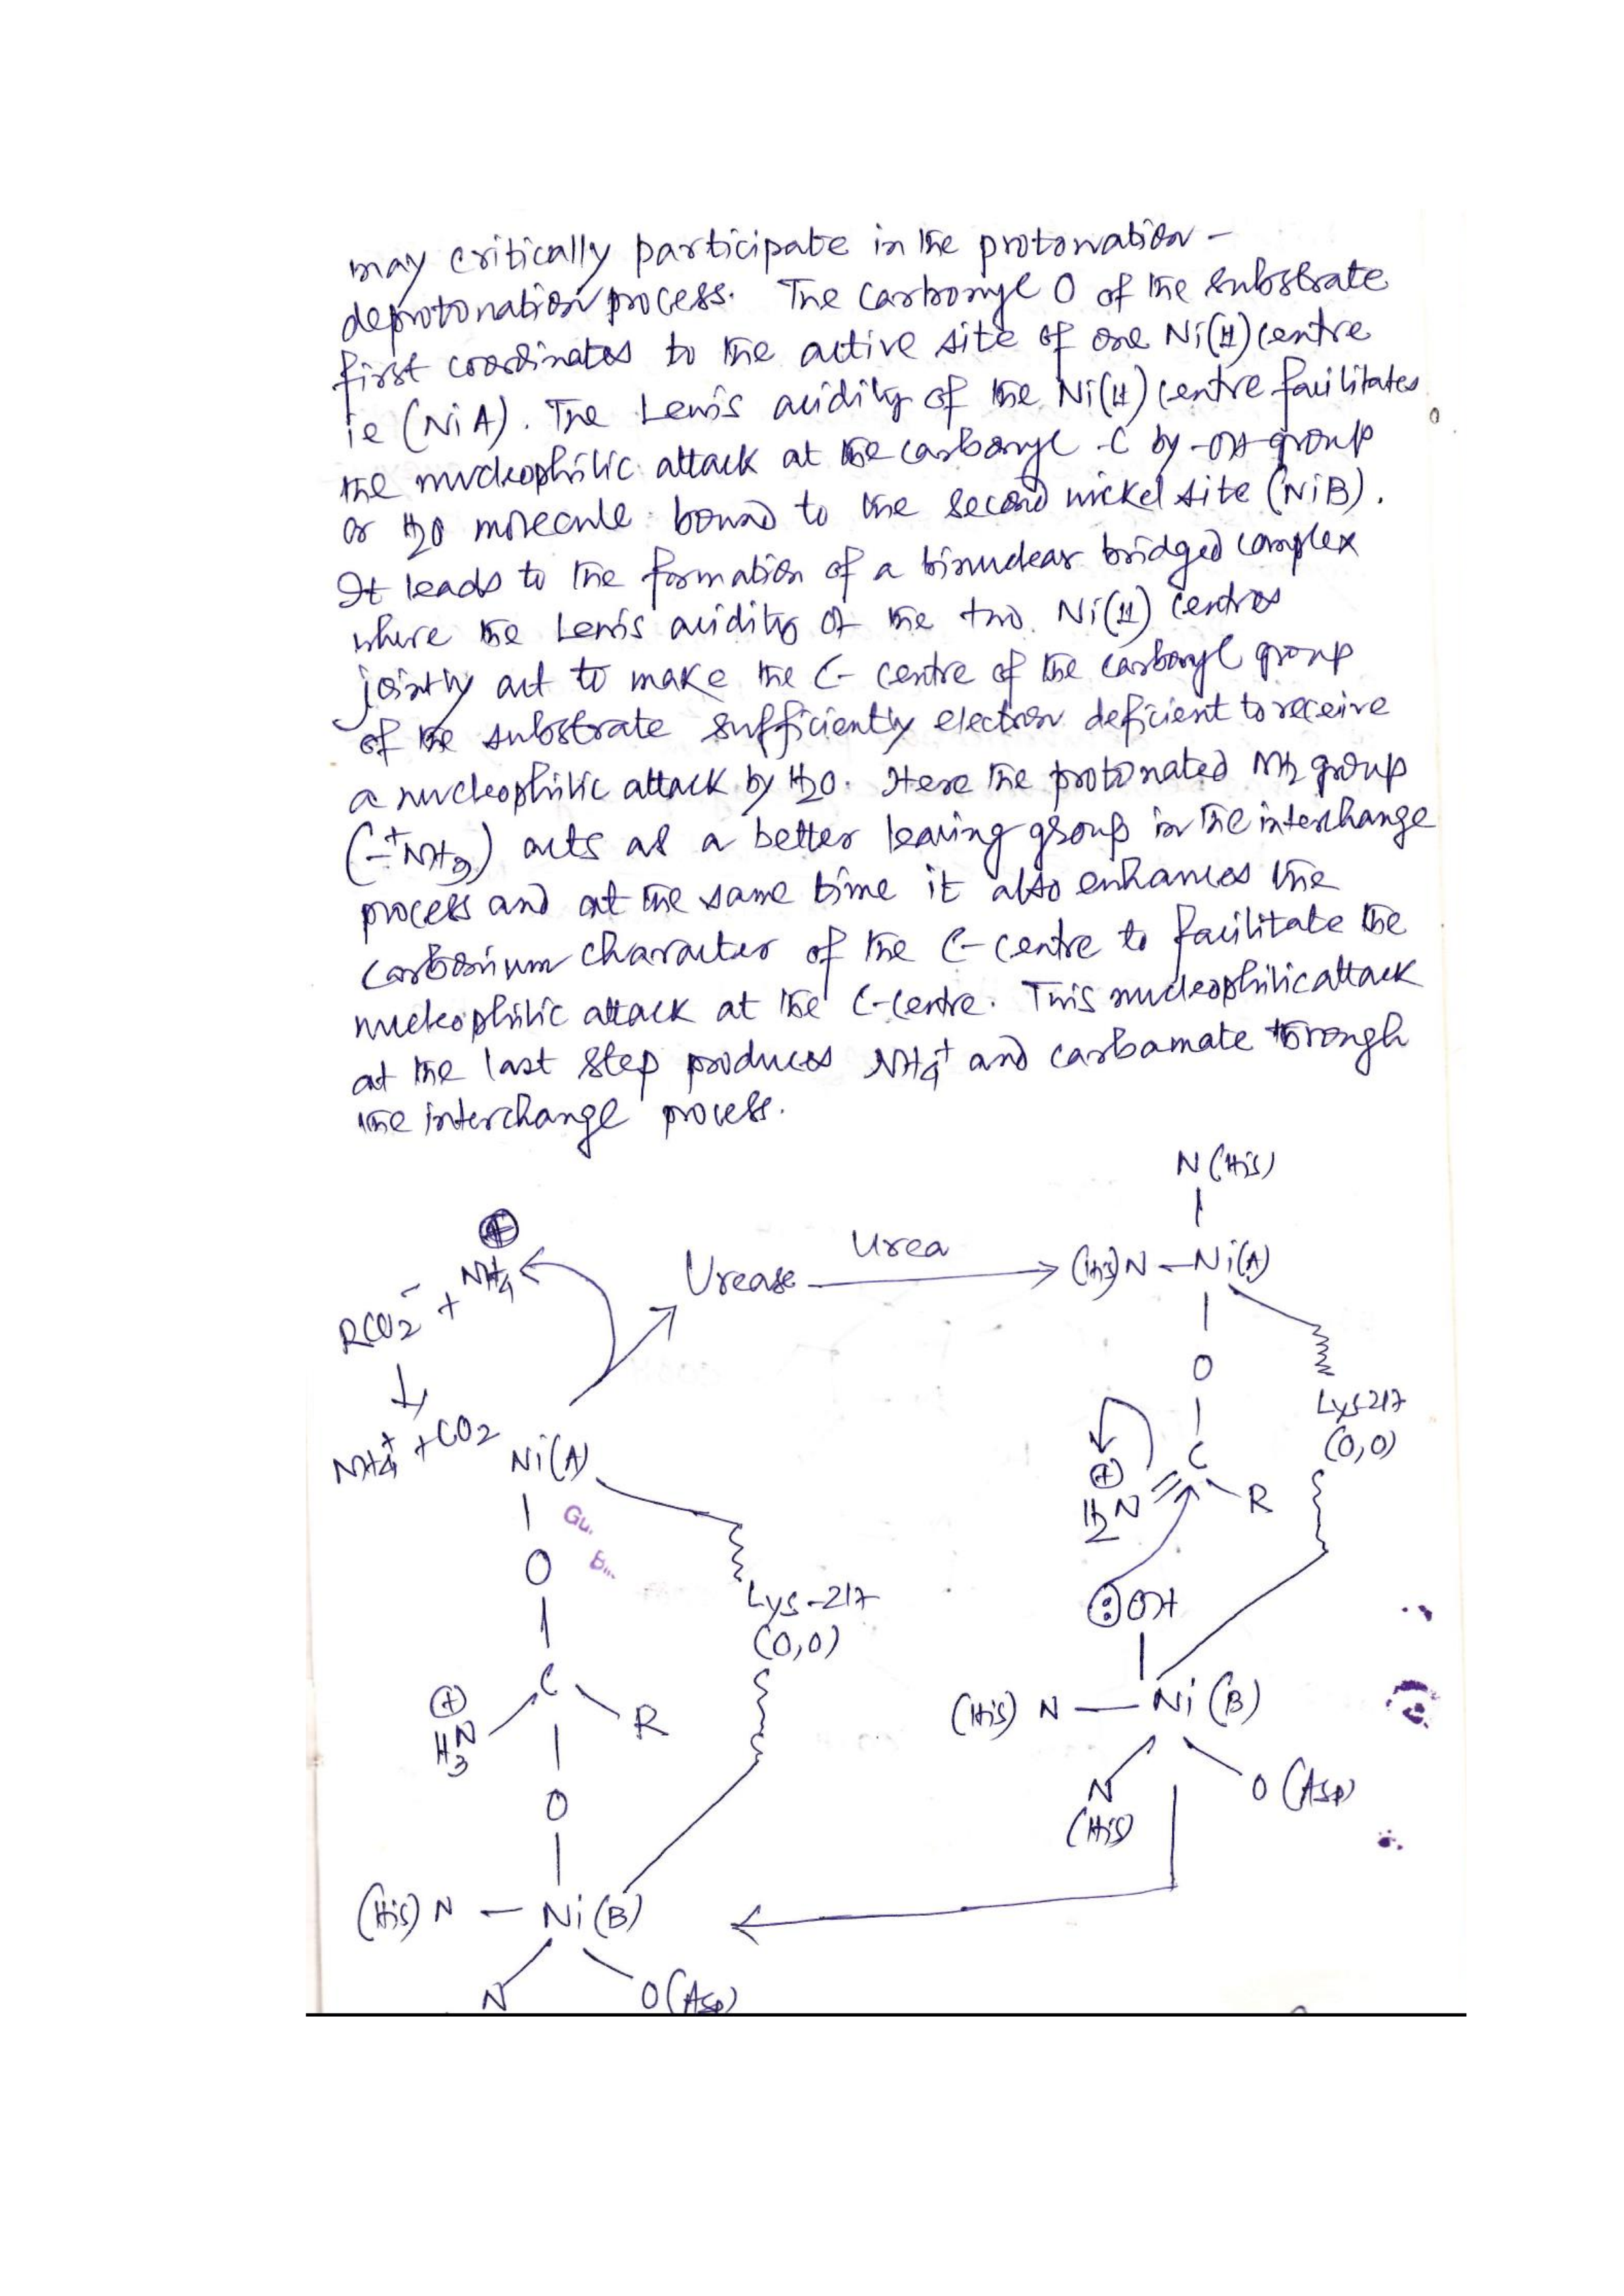 may critically participate in the protonation-
deprotonation process. The carbonyl O of the substrate
first coordinates to the active site of one Ni(II) centre
ie (NiA). The Lewis acidity of the Ni(II) centre facilitates
the nucleophilic attack at the carbonyl -C by -OH group
or H2O molecule bound to the second nickel site (NiB).
It leads to the formation of a binuclear bridged complex
where the Lewis acidity of the two Ni(II) centres
jointly act to make the C- centre of the carbonyl group
of the substrate sufficiently electron deficient to receive
a nucleophilic attack by H2O. Here the protonated NH2 group
(-+NH3) acts as a better leaving group in the interchange
process and at the same time it also enhances the
carbonium character of the C-centre to facilitate the
nucleophilic attack at the C-centre. This nucleophilic attack
at the last step produces NH4+ and carbamate through
the interchange process.
N(His)
⊕
NH4
RCO2- +
Urease
Urea
(His)N - Ni(A)
O
Lys-217
(O,O)
NH4+ + CO2
Ni(A)
C
⊕
H2N
R
Gu.
B...
O
Lys-217
(O,O)
:OH
C
⊕
H3N
R
(His) N - Ni(B)
O
N
(His)
O(Asp)
(His) N - Ni(B)
N
O(Asp)